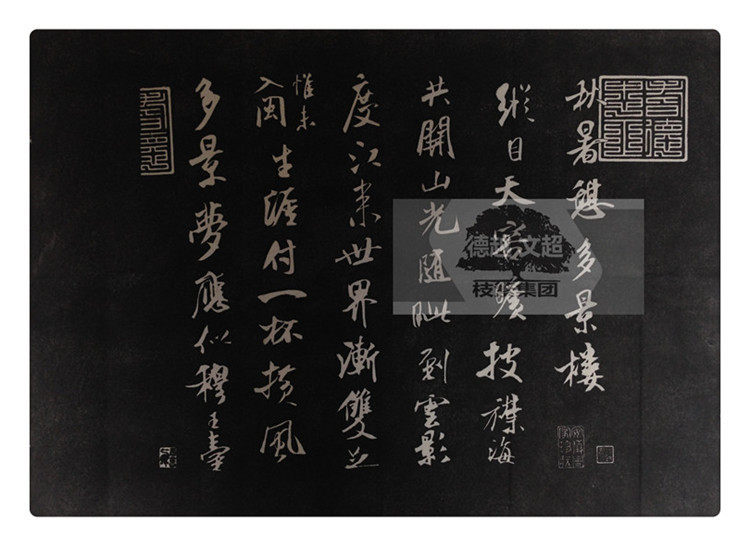 秋暑憩多景樓
縱目天容曠披襟海
共開山光隨眦到雲影
度江來世界漸雙足
惟未
入閩
生涯付一杯横風
多景夢應似穆王臺
德 文超
枝 集团